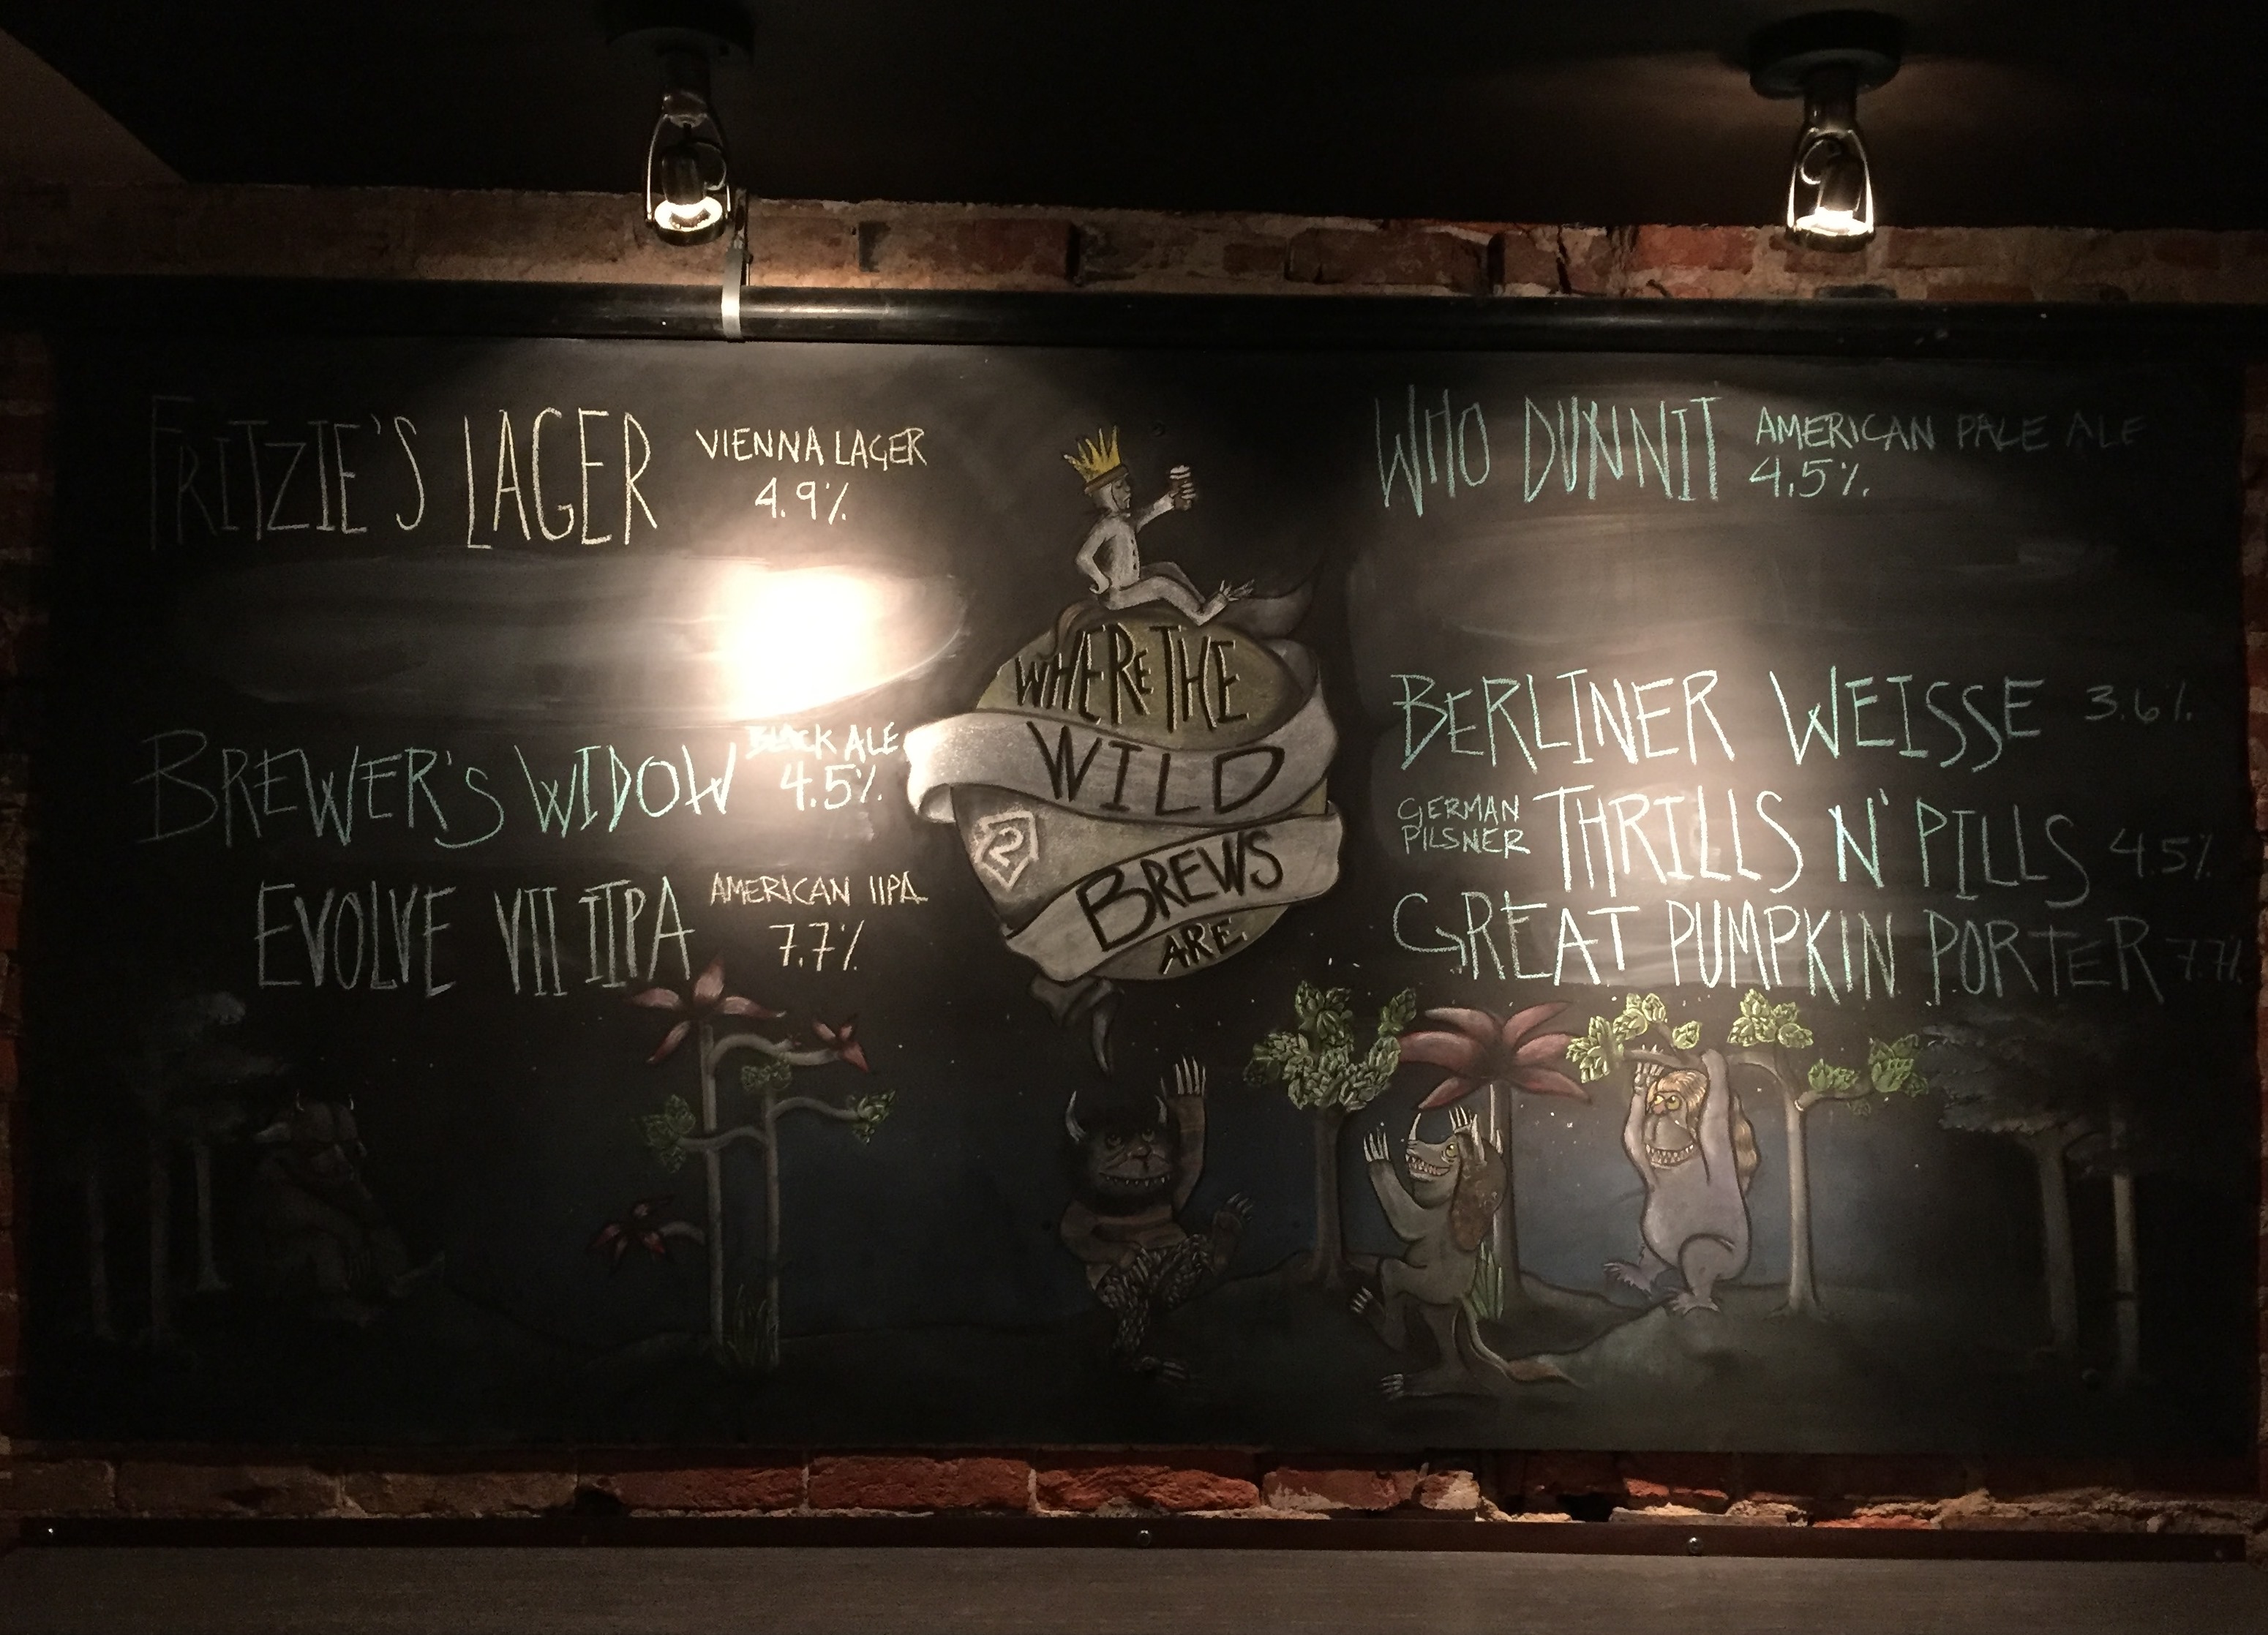 FRITZIE'S LAGER
VIENNA LAGER
4.9%
BREWER'S WIDOW
BLACK ALE
4.5%
EVOLVE VII IIPA
AMERICAN IIPA
7.7%
WHERE THE
WILD
2
BREWS
ARE
WHO DUNNIT
AMERICAN PALE ALE
4.5%
BERLINER WEISSE 3.6%
GERMAN
PILSNER
THRILLS N' PILLS 4.5%
GREAT PUMPKIN PORTER 7.7%